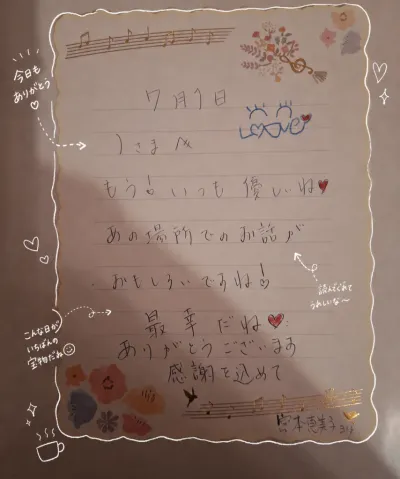 今日も
ありがとう
7月1日
Jさまへ
もう!いつも優しいね
あの場所でのお話が
おもしろいですね!
読んでくれて
うれしいな〜
最幸だね
ありがとうございます
感謝を込めて
こんな日が
いちばんの
宝物だね
宮本恵美子